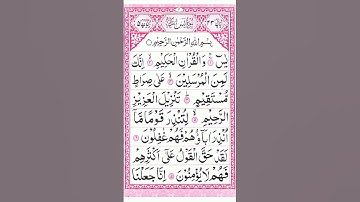 بِسْمِ اللهِ الرَّحْمٰنِ الرَّحِيْمِ
يٰسٓ ۚ وَالْقُرْاٰنِ الْحَكِيْمِ ۙ اِنَّكَ
لَمِنَ الْمُرْسَلِيْنَ ۙ عَلٰى صِرَاطٍ
مُّسْتَقِيْمٍ ؕ تَنْزِيْلَ الْعَزِيْزِ
الرَّحِيْمِ ۙ لِتُنْذِرَ قَوْمًا مَّاۤ
اُنْذِرَ اٰبَآؤُهُمْ فَهُمْ غٰفِلُوْنَ
لَقَدْ حَقَّ الْقَوْلُ عَلٰٓى اَكْثَرِهِمْ
فَهُمْ لَا يُؤْمِنُوْنَ اِنَّا جَعَلْنَا